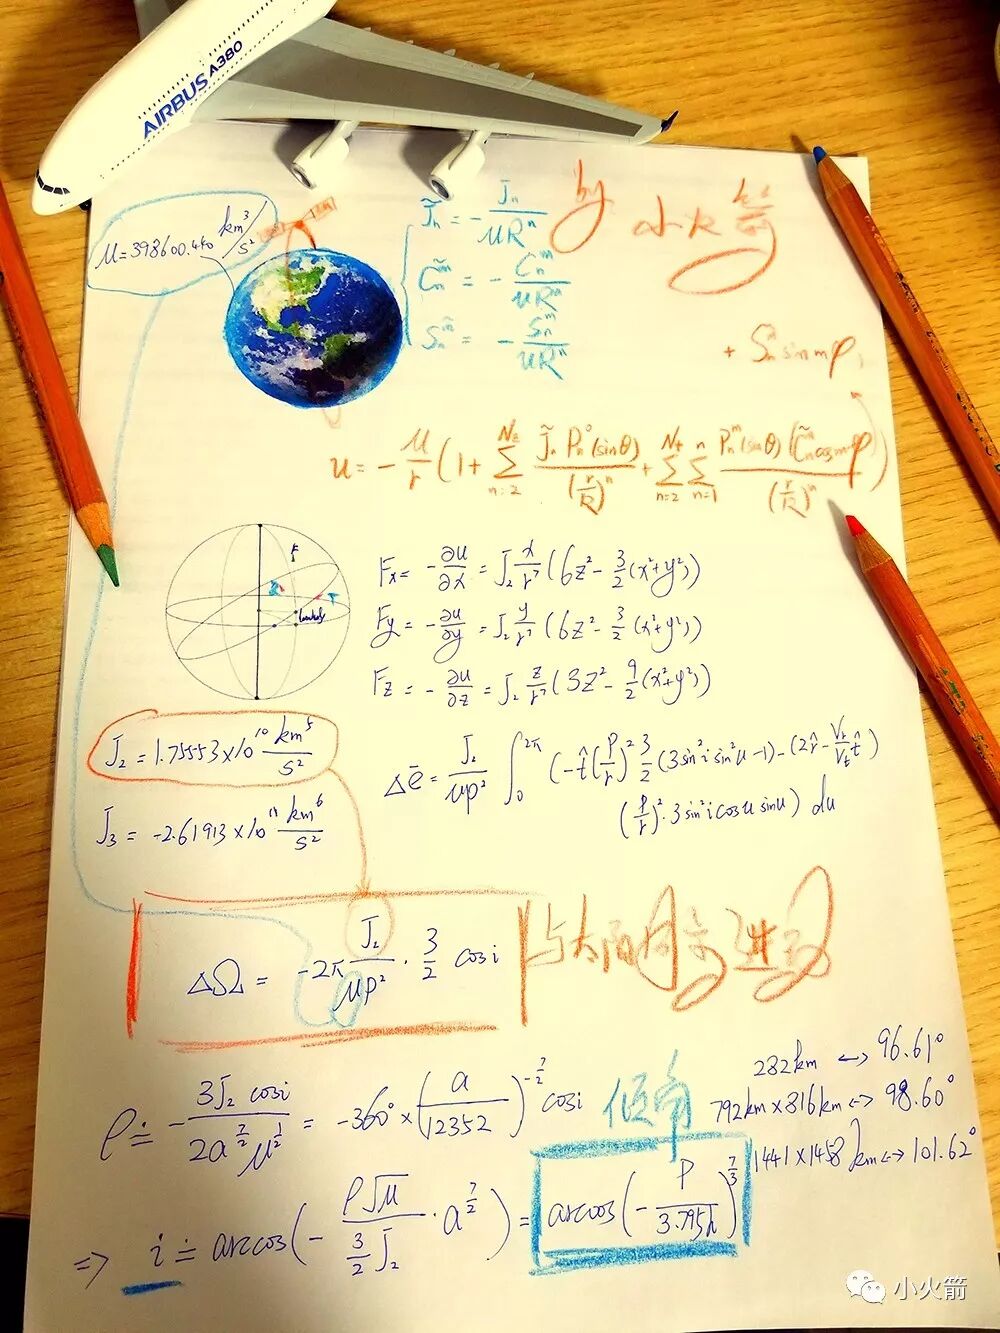 AIRBUS A380
μ=398600.440 km³/s²
J̃ₙ = - Jₙ/μRⁿ
C̃ₙᵐ = - Cₙᵐ/μRⁿ
S̃ₙᵐ = - Sₙᵐ/μRⁿ
by 小火箭
+ S̃ₙᵐ sin mφ
u = - μ/r (1 + ∑_{n=2}^{Nz} J̃ₙ Pₙ⁰(sinθ)/(r/R)ⁿ + ∑_{n=2}^{Nt} ∑_{n=1}^{n} Pₙᵐ(sinθ)(C̃ₙᵐ cos mφ)/(r/R)ⁿ)
Fx = - ∂u/∂x = J₂ x/r⁷ (6z² - 3/2 (x²+y²))
Fy = - ∂u/∂y = J₂ y/r⁷ (6z² - 3/2 (x²+y²))
Fz = - ∂u/∂z = J₂ z/r⁷ (3z² - 9/2 (x²+y²))
J₂ = 1.75553×10¹⁰ km⁵/s²
J₃ = -2.61913×10¹¹ km⁶/s²
Δē = J₂/μp² ∫₀^{2π} (-t̂ (p/r)² 3/2 (3sin²i sin²u -1) - (2r̂ - Vr/Vt t̂)
(p/r)²·3sin²i cosu sinu) du
ΔΩ = -2π J₂/μp² · 3/2 cosi
与太阳同步进动
ρ ≐ - 3J₂ cosi/2a^{7/2}μ^{1/2} = -360° × (a/12352)^{-7/2} cosi
倾角
282km ↔ 96.61°
792km×816km ↔ 98.60°
1441×1458km ↔ 101.62°
⇒ i ≐ arccos(- ρ√μ/(3/2 J₂) · a^{7/2}) = arccos(- P/3.795h)^{7/3}
小火箭